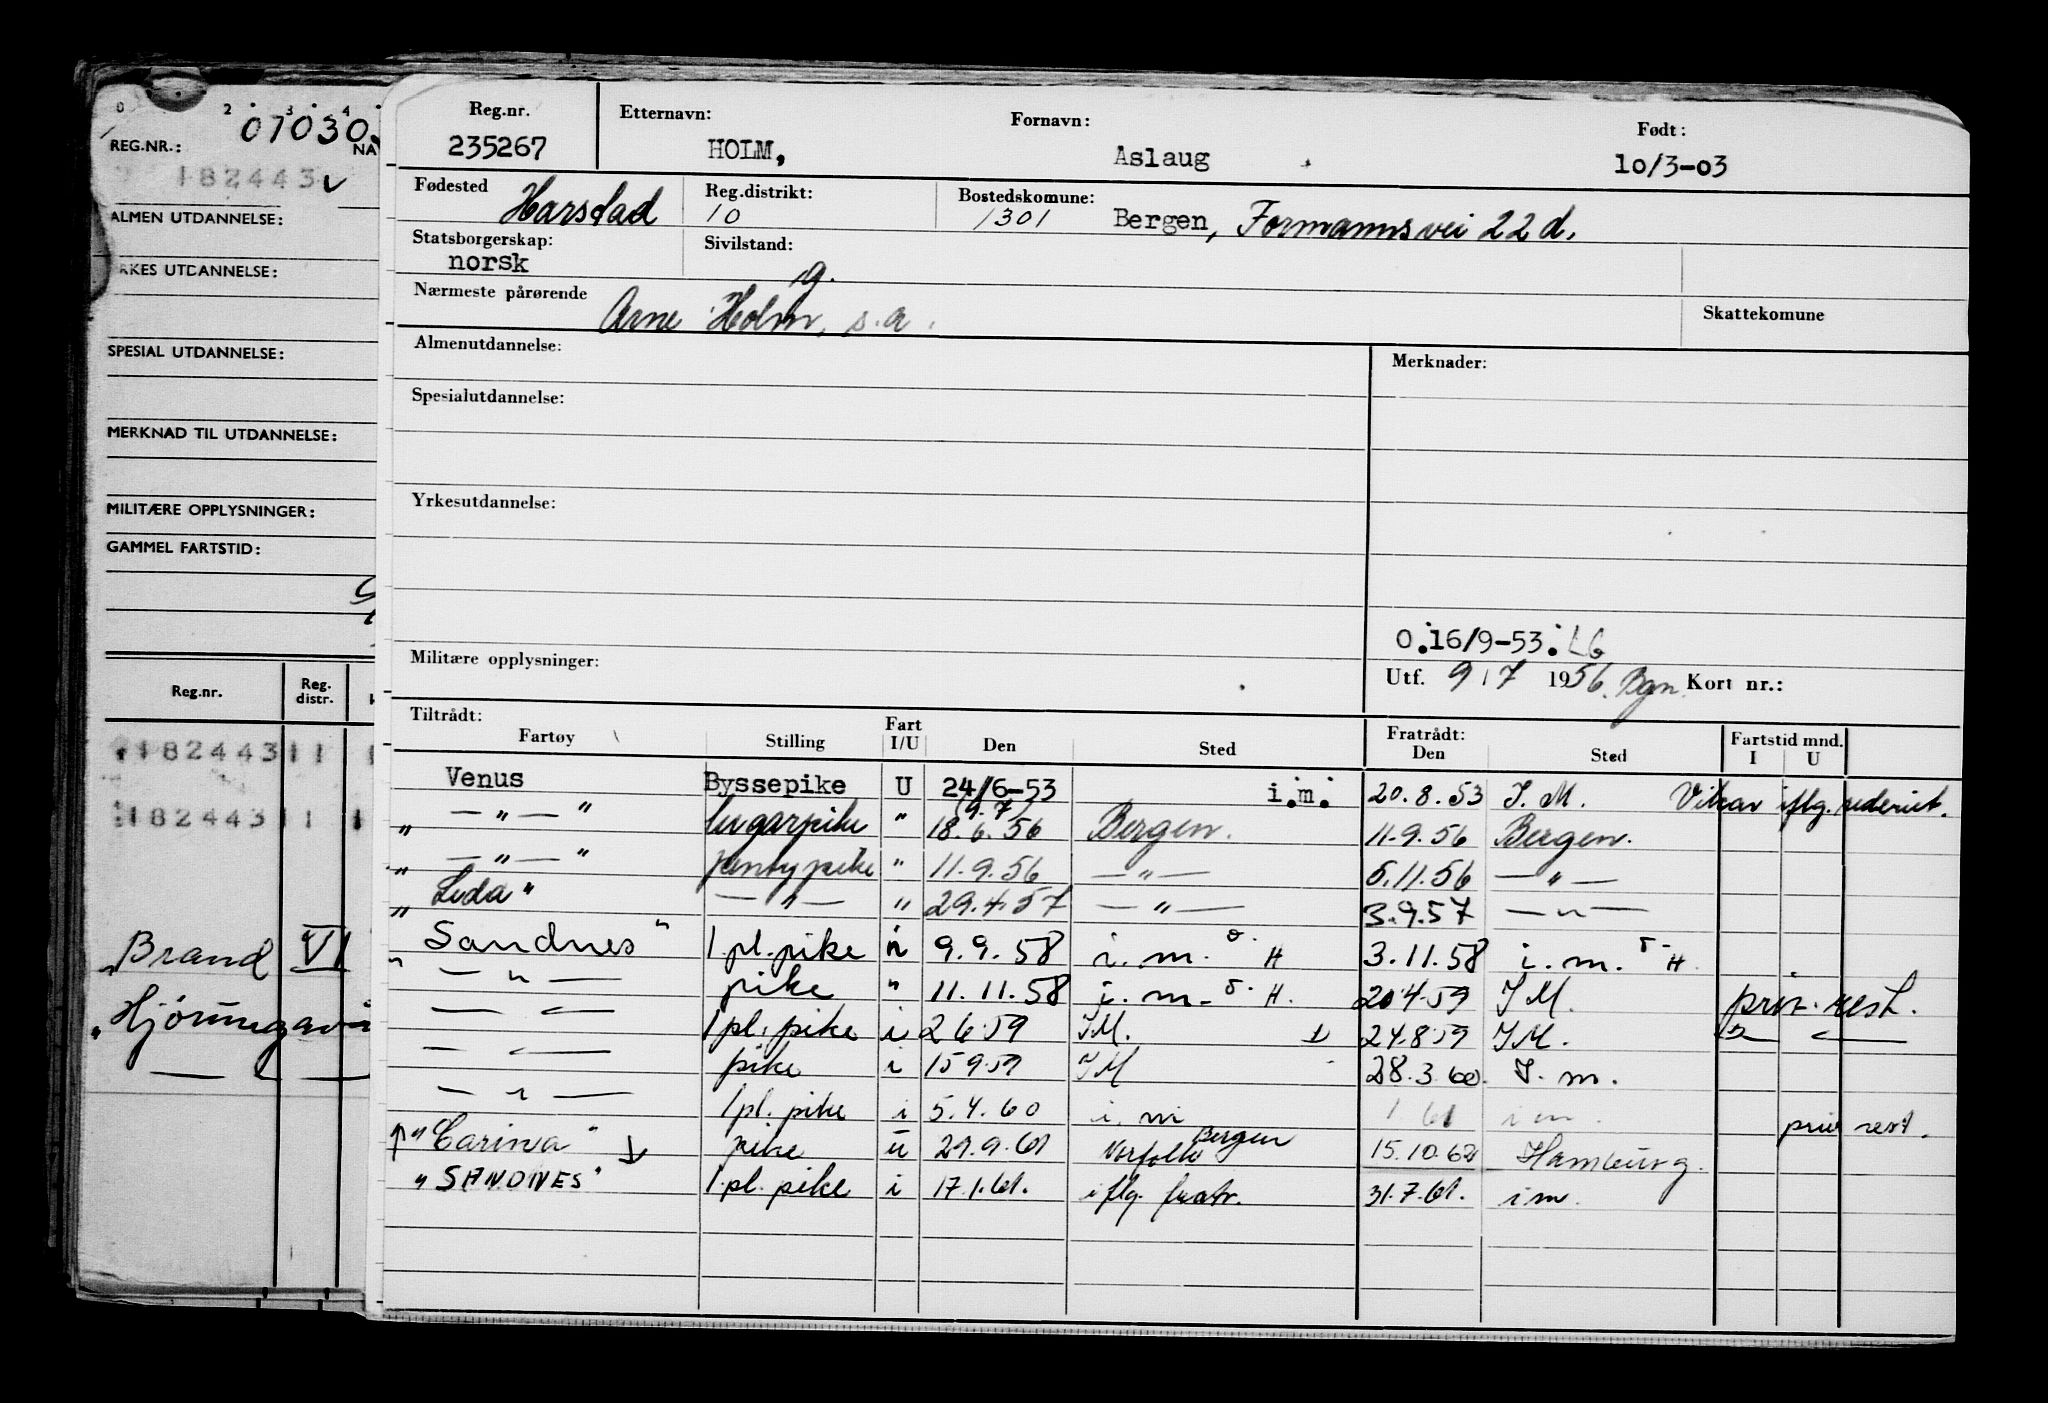 0 2 3 4
REG.NR.: 07030
NA
182443
ALMEN UTDANNELSE:
RKES UTDANNELSE:
SPESIAL UTDANNELSE:
MERKNAD TIL UTDANNELSE:
MILITÆRE OPPLYSNINGER:
GAMMEL FARTSTID:
Reg.nr. Reg. distr.
182443 11
182443 11
"Brand VI
"Hjörungavå
Reg.nr. Etternavn: Fornavn: Født:
235267 HOLM, Aslaug 10/3-03
Fødested Harstad Reg.distrikt: 10 Bostedskomune: 1301 Bergen, Formannsvei 22 d.
Statsborgerskap: norsk Sivilstand: g.
Nærmeste pårørende Arne Holm, s.a. Skattekomune
Almenutdannelse: Merknader:
Spesialutdannelse:
Yrkesutdannelse:
O.16/9-53. LG
Militære opplysninger: Utf. 9/7 1956. Bgn. Kort nr.:
Tiltrådt: Fart Fratrådt: Fartstid mnd.
Fartøy Stilling I/U Den Sted Den Sted I U
Venus Byssepike U 24/6-53 i.m. 20.8.53 I.M. Vikar iflg. rederiet.
" — " — " lugarpike " 9.7 18.6.56 Bergen. 11.9.56 Bergen.
" — " — " pentrypike " 11.9.56 — " — 5.11.56 — " —
" Leda " — " — " 29.4.57 — " — 3.9.57 — " —
" Sandnes " 1.pl.pike i 9.9.58 i.m. H 3.11.58 i.m. H.
— " — pike " 11.11.58 i.m. H. 20.4.59 I M. priv. rest.
— " — 1 pl. pike i 2 6 59 I M. 24.8.59 I M. — " —
— " — pike i 15 9 59 I M 28.3.60. I. m.
— " — 1 pl. pike i 5.4.60 i. m 1 61 i m. priv rest.
↑ "Carina" ↓ pike u 29.9.61 Norfolk Bergen 15.10.62 Hamburg.
"SANDNES" 1.pl. pike i 17.1.61. iflg. fratr. 31.7.61. i m.